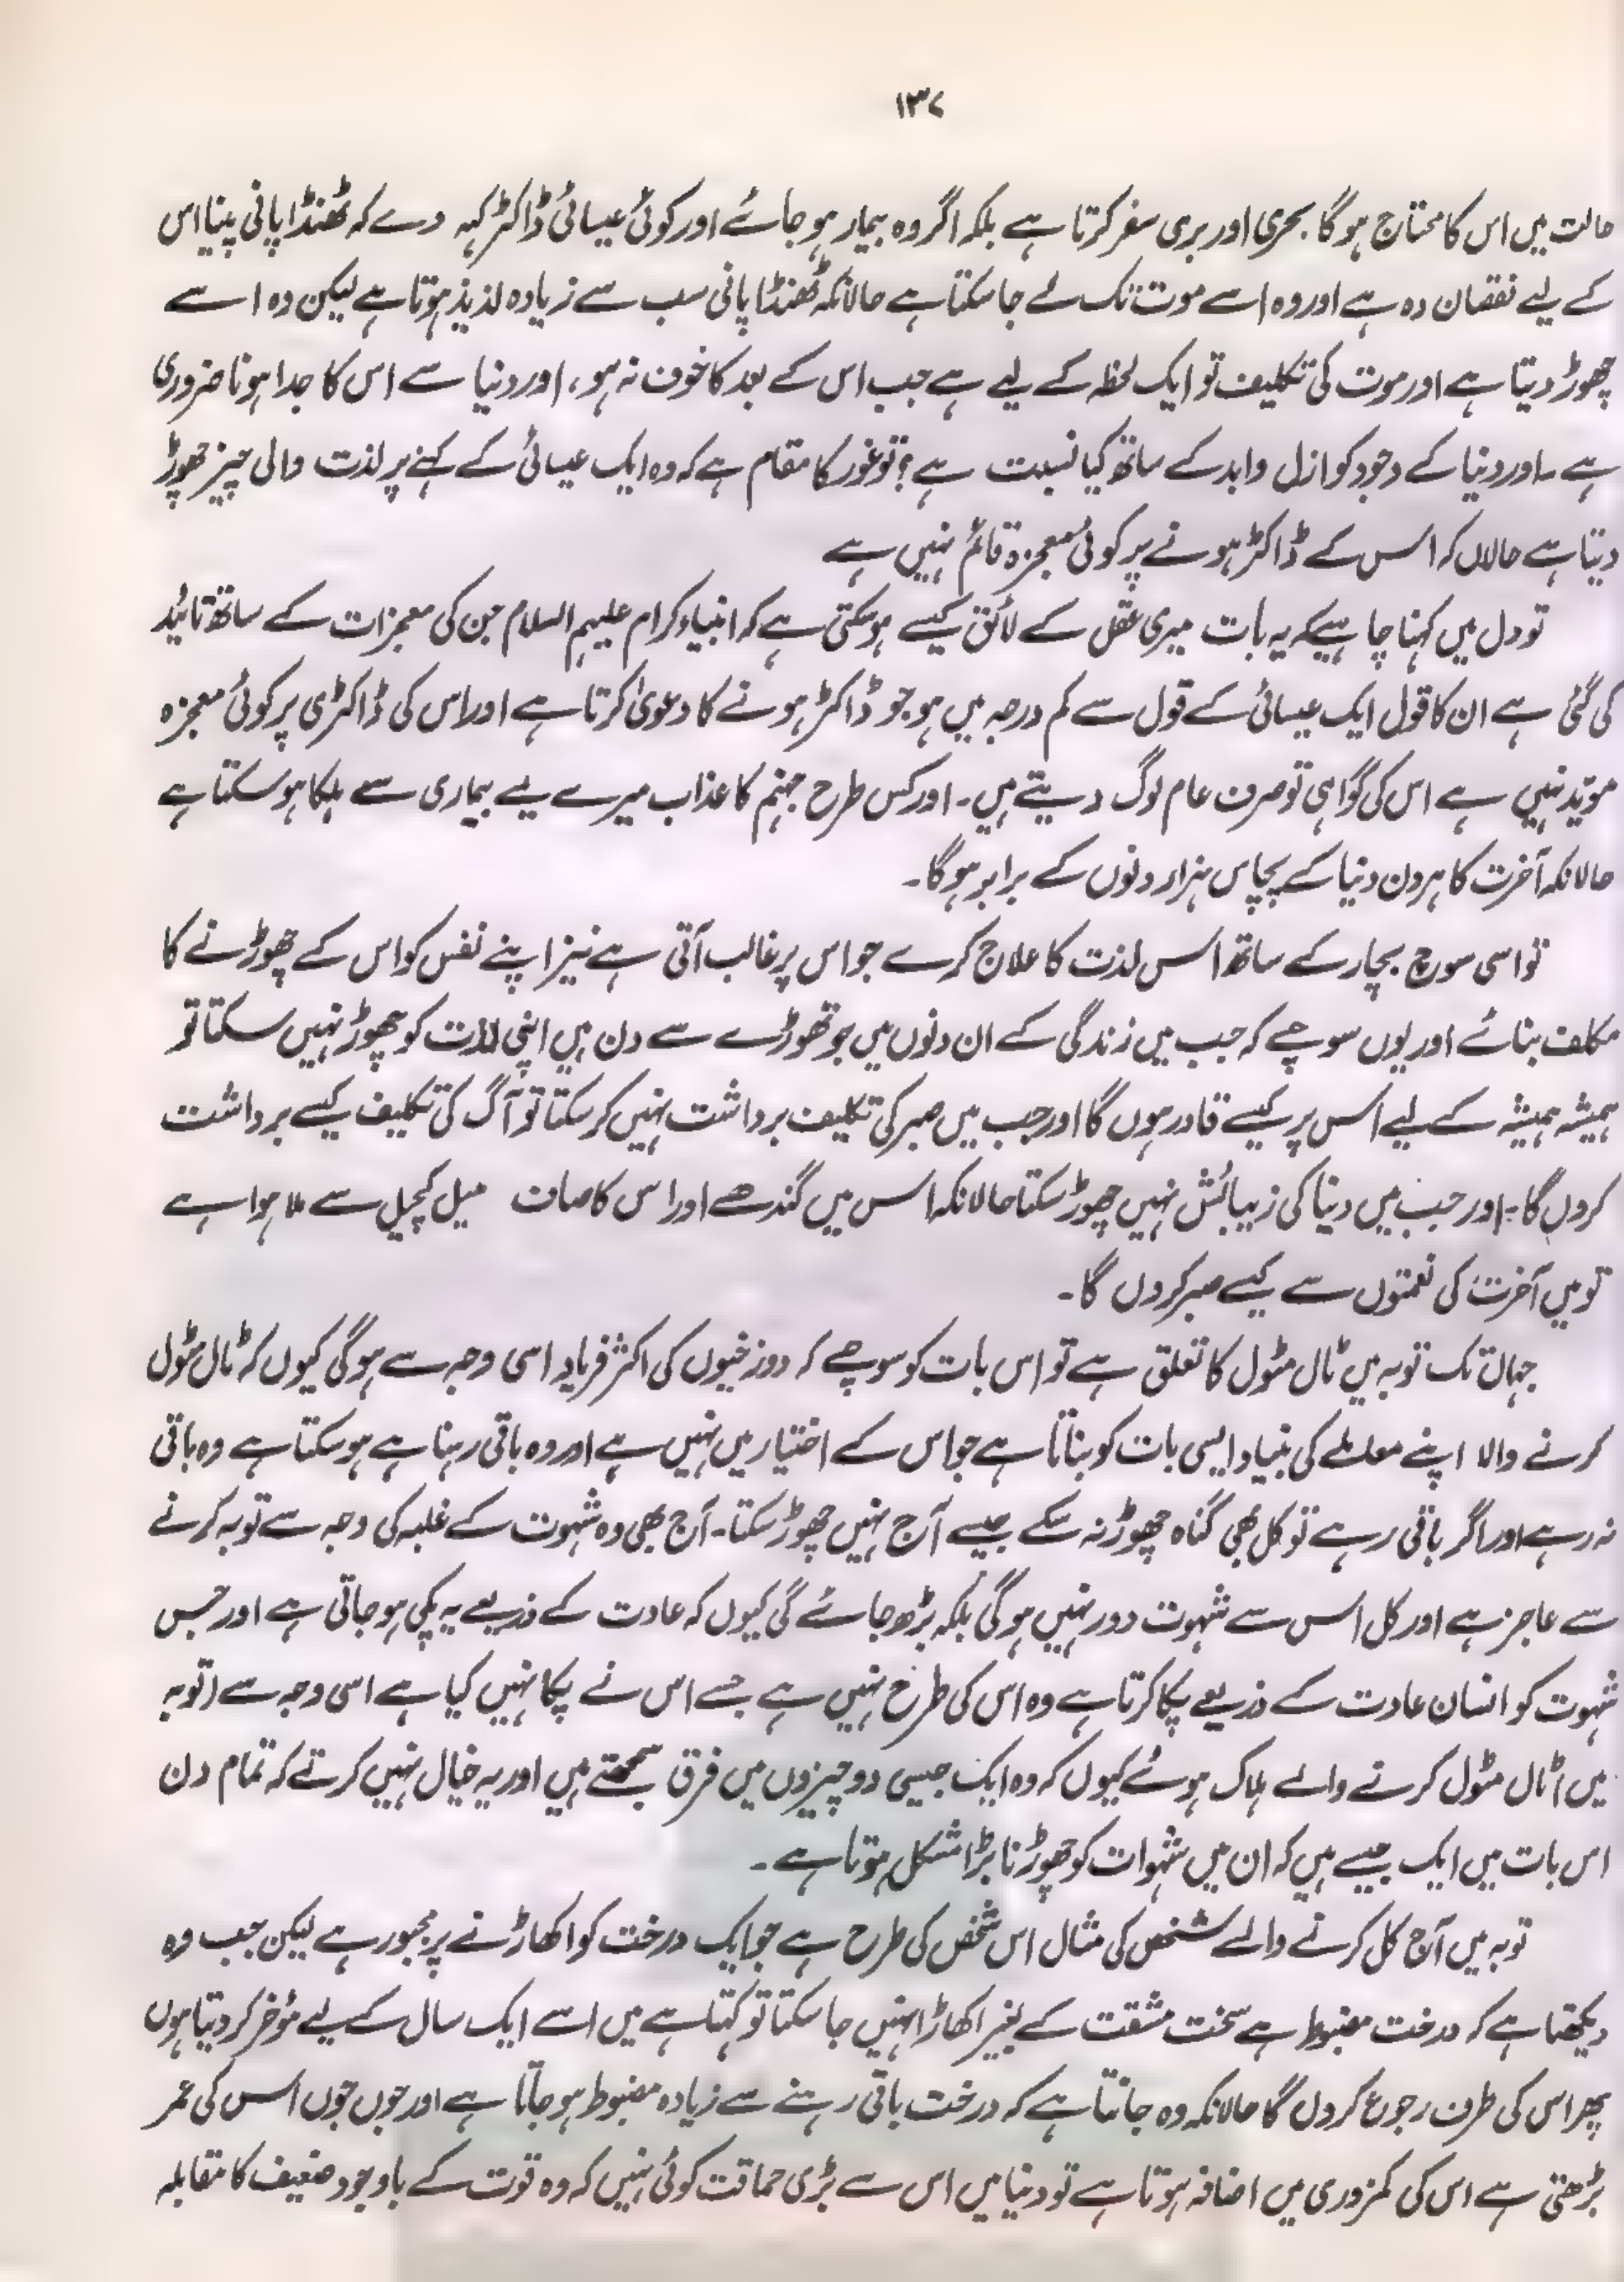 ۱۳۷
حالت میں اس کا محتاج ہوگا بحری اور بری سفر کرتا ہے بلکہ اگر وہ بیمار ہو جائے اور کوئی عیسائی ڈاکٹر کہہ دے کہ ٹھنڈا پانی پینا اس
کے لیے نقصان دہ ہے اور وہ اسے موت تک لے جا سکتا ہے حالانکہ ٹھنڈا پانی سب سے زیادہ لذیذ ہوتا ہے لیکن وہ اسے
چھوڑ دیتا ہے اور موت کی تکلیف تو ایک لحظہ کے لیے ہے جب اس کے بعد کا خوف نہ ہو، اور دنیا سے اس کا جدا ہونا ضروری
ہے۔ اور دنیا کے وجود کو ازل وابد کے ساتھ کیا نسبت ہے؟ تو غور کا مقام ہے کہ وہ ایک عیسائی کے کہنے پر لذت والی چیز چھوڑ
دیتا ہے حالاں کہ اس کے ڈاکٹر ہونے پر کوئی معجزہ قائم نہیں ہے
تو دل میں کہنا چاہیے کہ یہ بات میری عقل کے لائق کیسے ہو سکتی ہے کہ انبیاء کرام علیہم السلام جن کی معجزات کے ساتھ تائید
کی گئی ہے ان کا قول ایک عیسائی کے قول سے کم درجہ میں ہو جو ڈاکٹر ہونے کا دعویٰ کرتا ہے اور اس کی ڈاکٹری پر کوئی معجزہ
مؤید نہیں ہے اس کی گواہی تو صرف عام لوگ دیتے ہیں۔ اور کس طرح جہنم کا عذاب میرے لیے بیماری سے ہلکا ہو سکتا ہے
حالانکہ آخرت کا ہر دن دنیا کے پچاس ہزار دنوں کے برابر ہوگا۔
تو اسی سوچ بچار کے ساتھ اس لذت کا علاج کرے جو اس پر غالب آتی ہے نیز اپنے نفس کو اس کے چھوڑنے کا
مکلف بنائے اور یوں سوچے کہ جب میں زندگی کے ان دنوں میں جو تھوڑے سے دن ہیں اپنی لذت کو چھوڑ نہیں سکتا تو
ہمیشہ ہمیشہ کے لیے اس پر کیسے قادر ہوں گا اور جب میں صبر کی تکلیف برداشت نہیں کر سکتا تو آگ کی تکلیف کیسے برداشت
کروں گا۔ اور جب میں دنیا کی زیبائش نہیں چھوڑ سکتا حالانکہ اس میں گندھے اور اس کا صاف میل کچیل سے ملا ہوا ہے
تو میں آخرت کی نعمتوں سے کیسے صبر کروں گا۔
جہاں تک توبہ میں ٹال مٹول کا تعلق ہے تو اس بات کو سوچے کہ دوزخیوں کی اکثر فریاد اسی وجہ سے ہوگی کیوں کہ ٹال مٹول
کرنے والا اپنے معاملے کی بنیاد ایسی بات کو بناتا ہے جو اس کے اختیار میں نہیں ہے اور وہ باقی رہنا ہے ہو سکتا ہے وہ باقی
نہ رہے اور اگر باقی رہے تو کل بھی گناہ چھوڑ نہ سکے جیسے آج نہیں چھوڑ سکتا۔ آج بھی وہ شہوت کے غلبہ کی وجہ سے توبہ کرنے
سے عاجز ہے اور کل اس سے شہوت دور نہیں ہوگی بلکہ بڑھ جائے گی کیوں کہ عادت کے ذریعے یہ پکی ہو جاتی ہے اور جس
شہوت کو انسان عادت کے ذریعے پکا کرتا ہے وہ اس کی طرح نہیں ہے جسے اس نے پکا نہیں کیا ہے اسی وجہ سے (توبہ
میں) ٹال مٹول کرنے والے ہلاک ہوئے کیوں کہ وہ ایک جیسی دو چیزوں میں فرق سمجھتے ہیں اور یہ خیال نہیں کرتے کہ تمام دن
اس بات میں ایک جیسے ہیں کہ ان میں شہوات کو چھوڑنا بڑا مشکل ہوتا ہے۔
توبہ میں آج کل کرنے والے شخص کی مثال اس شخص کی طرح ہے جو ایک درخت کو اکھاڑنے پر مجبور ہے لیکن جب وہ
دیکھتا ہے کہ درخت مضبوط ہے سخت مشقت کے بغیر اکھاڑا نہیں جا سکتا تو کہتا ہے میں اسے ایک سال کے لیے مؤخر کر دیتا ہوں
پھر اس کی طرف رجوع کروں گا حالانکہ وہ جانتا ہے کہ درخت باقی رہنے سے زیادہ مضبوط ہو جاتا ہے اور جوں جوں اس کی عمر
بڑھتی ہے اس کی کمزوری میں اضافہ ہوتا ہے تو دنیا میں اس سے بڑی حماقت کوئی نہیں کہ وہ قوت کے باوجود ضعیف کا مقابلہ